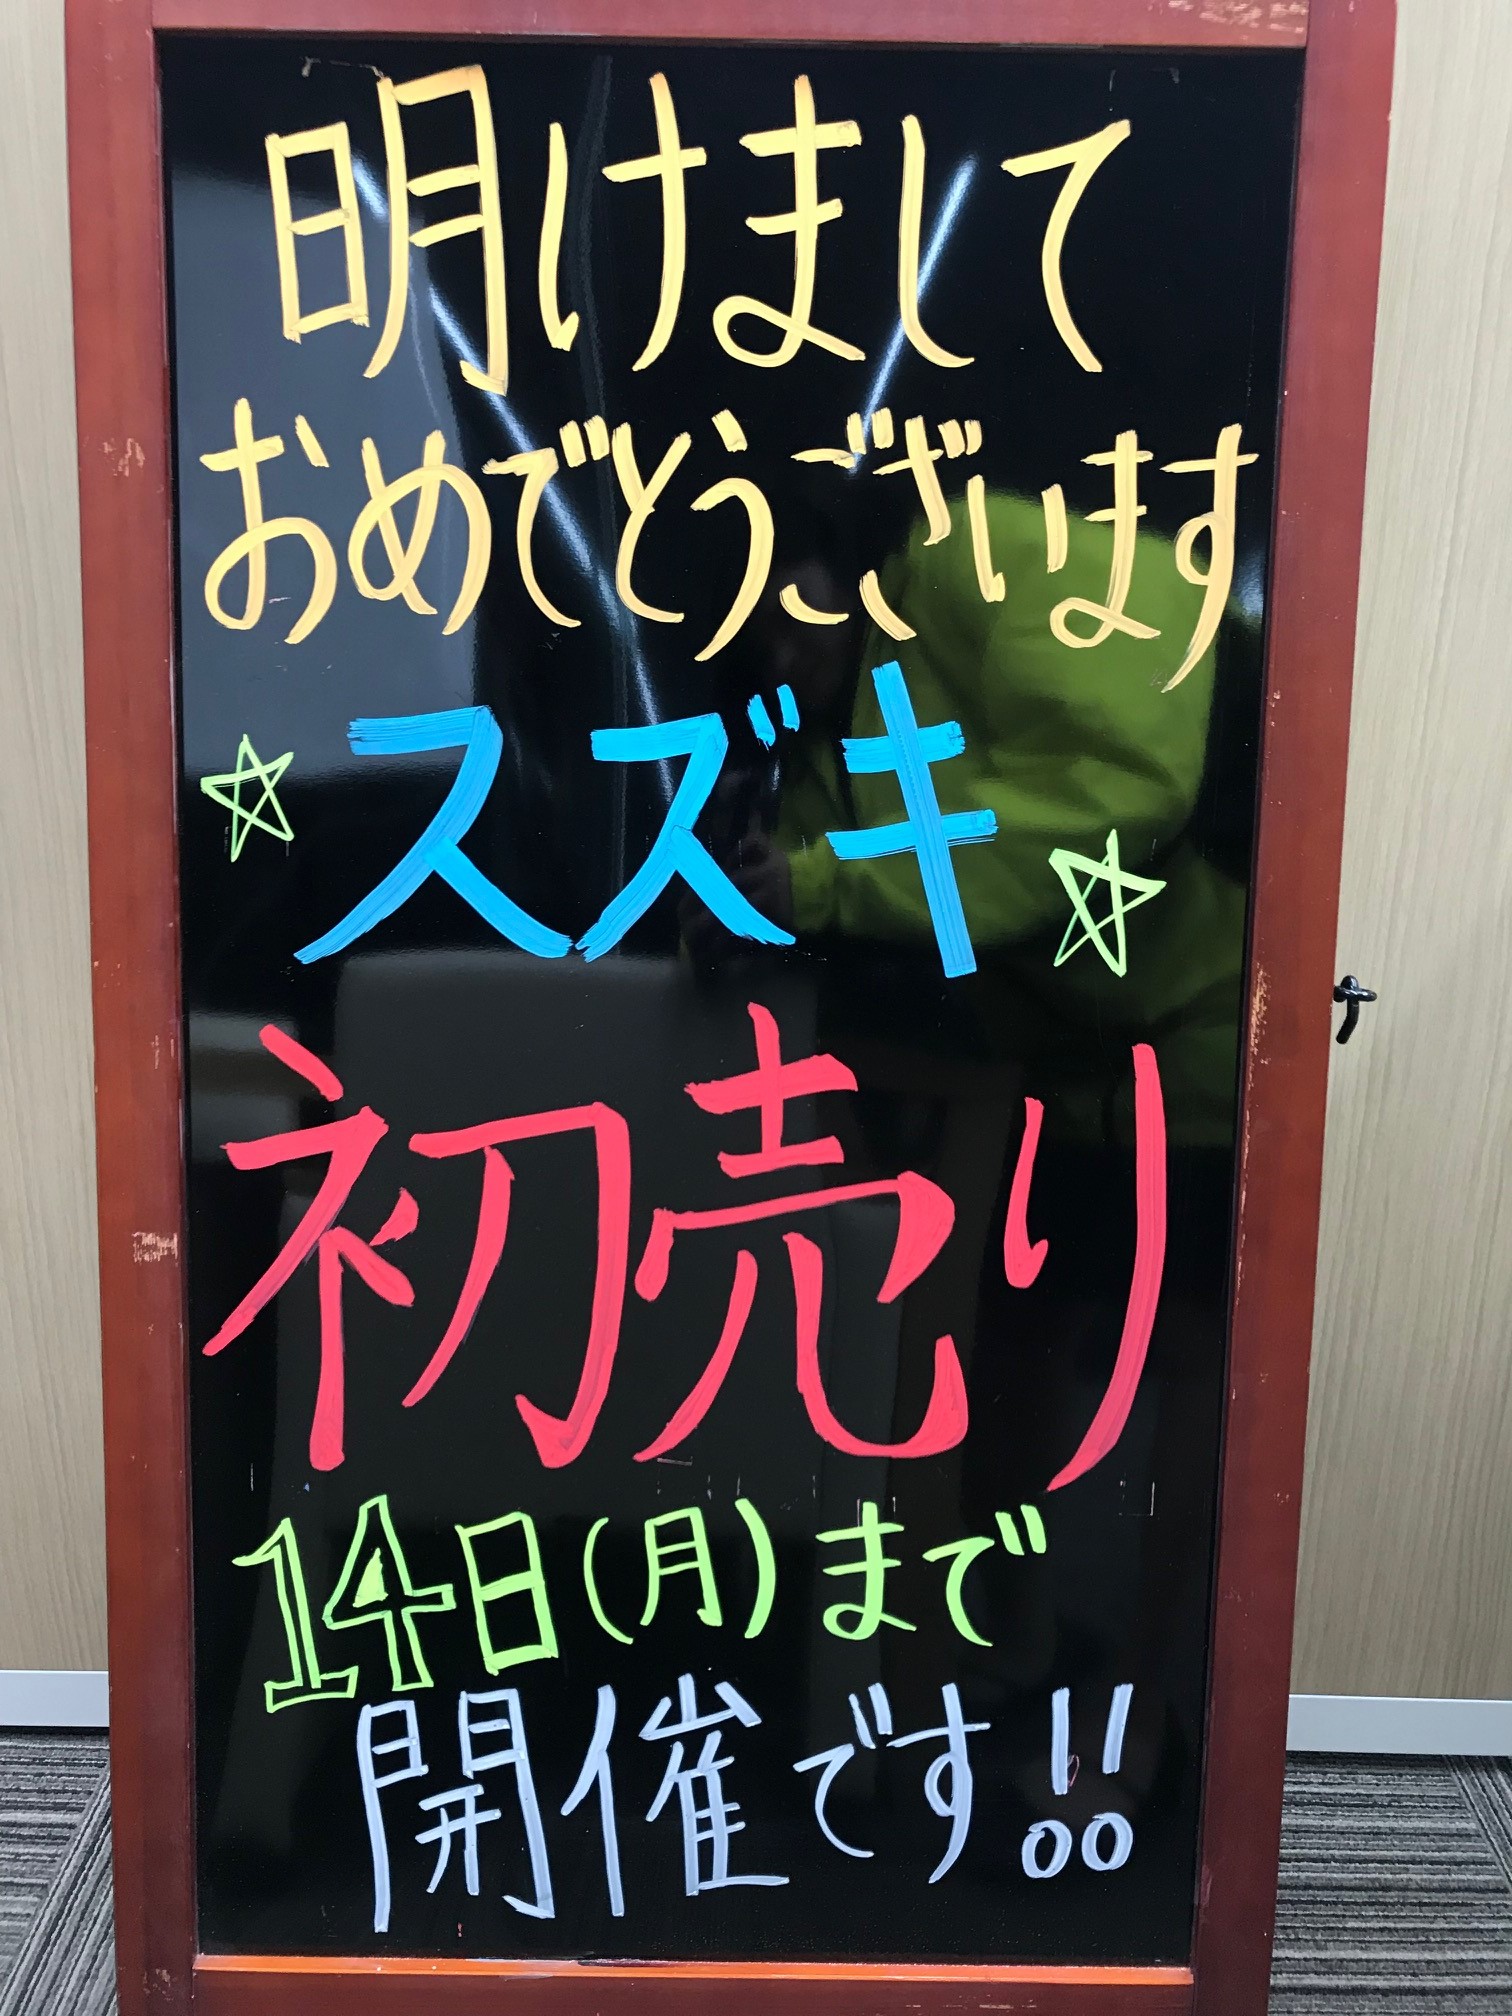 明けまして
おめでとうございます
☆スズキ☆
初売り
14日(月)まで
開催です!!